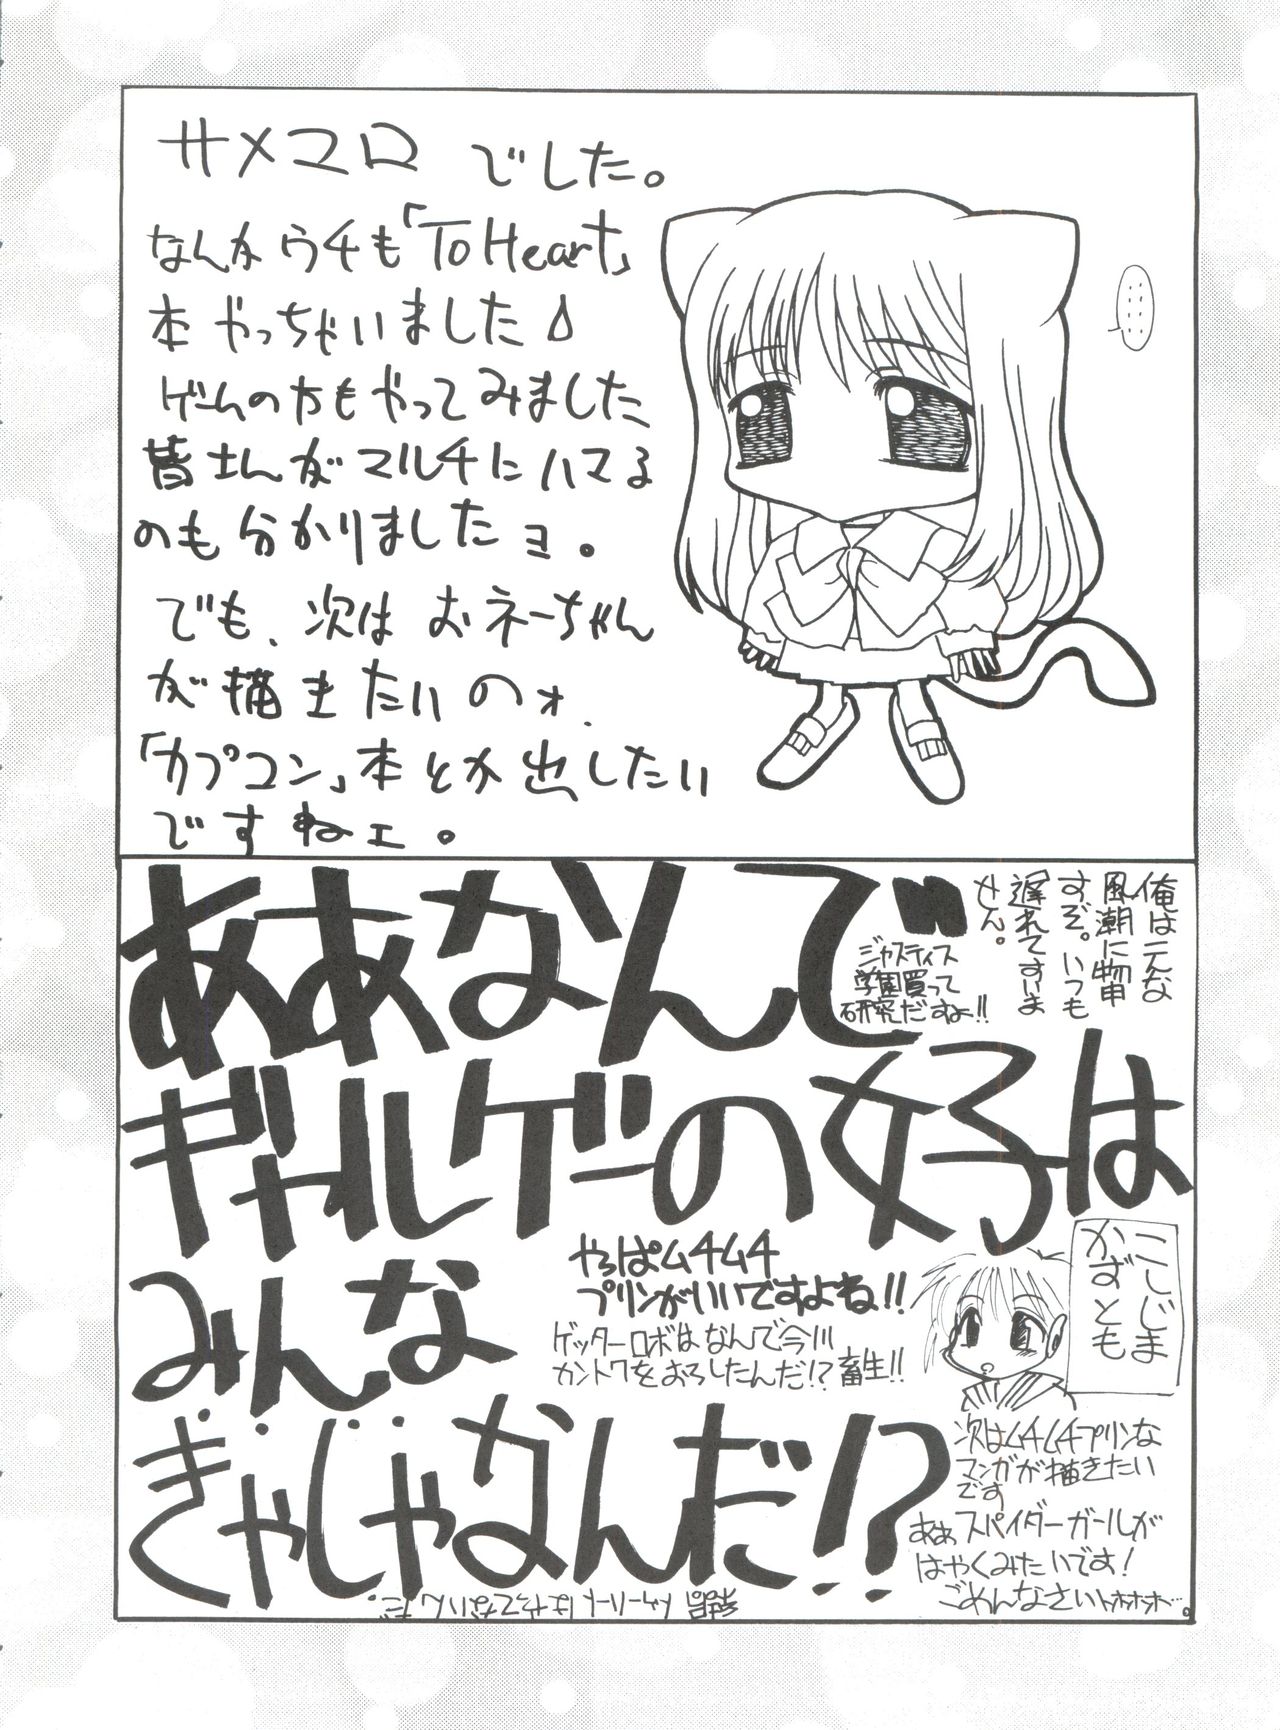 サメマロ でした。
なんかウチも「To Heart」
本やっちゃいました
ゲームの方もやってみました
皆さんがマルチにハマる
のも分かりましたヨ。
でも、次はおネーちゃん
が描きたいのォ、
「カプコン」本とか出したい
ですねェ。
………
俺はこんな
風潮に物申
すぞ。いつも
遅れてすいま
せん。
ああなんで
ジャスティス
学園買って
研究だすよ!!
ギャルゲーの女子は
みんな
やっぱムチムチ
プリンがいいですよね!!
ゲッターロボはなんで今川
カントクをおろしたんだ!?畜生!!
こじま
かずとも
ぎゃじゃなんだ!?
次はムチムチプリンな
マンガが描きたい
です
あぁスパイダーガールが
はやくみたいです!
ごめんなさいトホホホ…。
はやってないんだ。